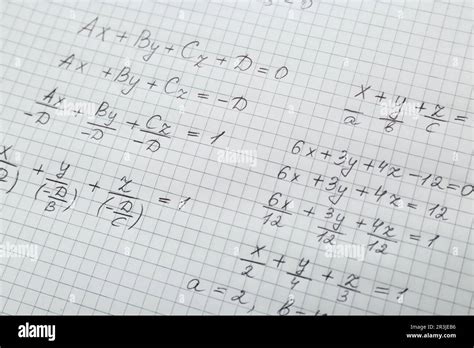 Ax + By + Cz + D = 0
Ax + By + Cz = -D
Ax/-D + By/-D + Cz/-D = 1
x/ + y/(-D/B) + z/(-D/C) = 1
x/a + y/b + z/c =
6x + 3y + 4z - 12 = 0
6x + 3y + 4z = 12
6x/12 + 3y/12 + 4z/12 = 1
x/2 + y/4 + z/3 = 1
a = 2,
alamy
Image ID: 2R3JEB6
www.alamy.com